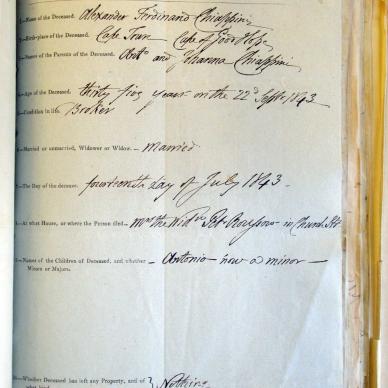 1.—Name of the Deceased. Alexander Ferdinand Chiappini
2.—Birth-place of the Deceased. Cape Town Cape of Good Hope
3.—Names of the Parents of the Deceased. Antº and Johanna Chiappini
4.—Age of the Deceased. thirty five years on the 22d Sept. 1843
5.—Condition in life. Broker
6.—Married or unmarried, Widower or Widow. — Married
7.—The Day of the decease. fourteenth day of July 1843.
8.—At what House, or where the Person died— Mrs the Widw Pt Roussouw in Church Str
9.—Names of the Children of Deceased, and whether Minors or Majors. — Antonio — now a minor —
10.—Whether Deceased has left any Property, and of what kind. } Nothing